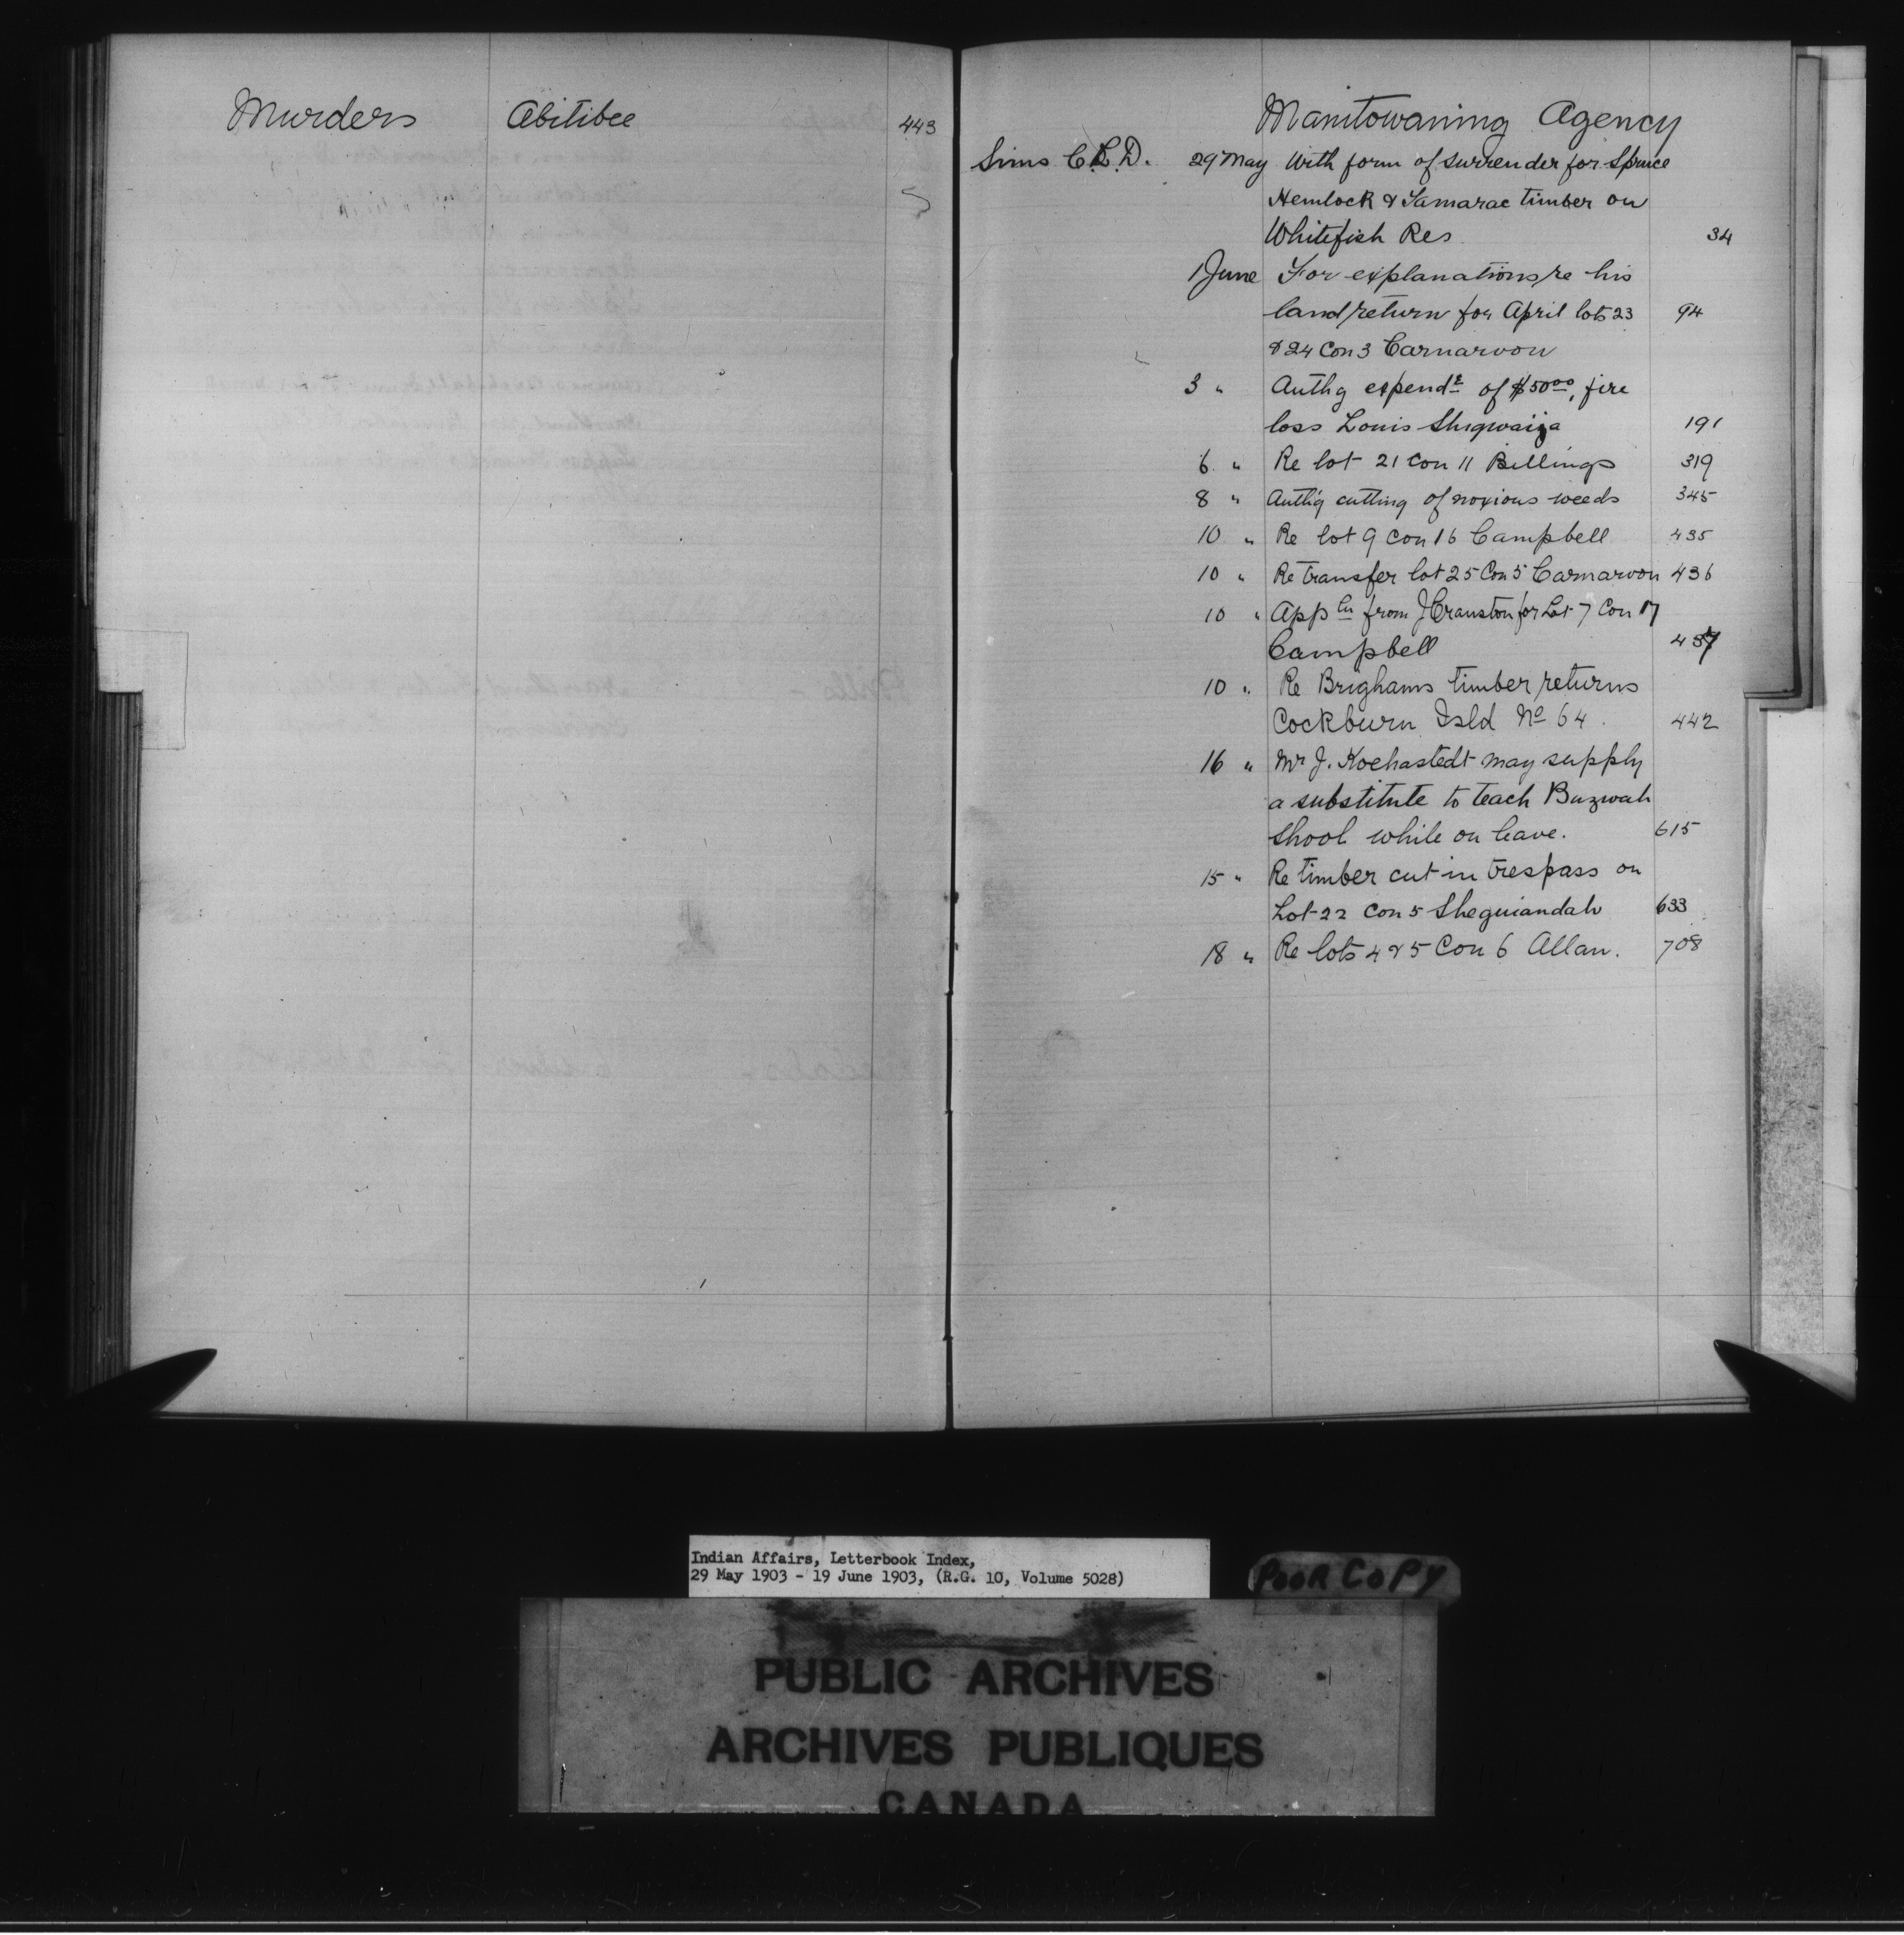 Murders Abitibee 443
Manitowaning Agency
Sims C.L.D. 29 May With form of surrender for Spruce
Hemlock & Tamarac timber on
Whitefish Res 34
1 June For explanations re his
land return for April lots 23 94
& 24 Con 3 Carnarvon
3 " Authg expendre of $50.00, fire
loss Louis Shigwaija 191
6 " Re lot 21 Con 11 Billings 319
8 " Authg cutting of noxious weeds 345
10 " Re lot 9 Con 16 Campbell 435
10 " Re transfer lot 25 Con 5 Carnarvon 436
10 " Appln from J Cranston for Lot 7 Con 17
Campbell 437
10 " Re Brighams timber returns
Cockburn Isld No 64. 442
16 " Mr J. Kochastedt may supply
a substitute to teach Buzwah
shool while on leave. 615
15 " Re timber cut in trespass on
Lot 22 Con 5 Sheguiandah 633
18 " Re lots 4 & 5 Con 6 Allan. 708
Indian Affairs, Letterbook Index,
29 May 1903 - 19 June 1903, (R.G. 10, Volume 5028)
POOR COPY
PUBLIC ARCHIVES
ARCHIVES PUBLIQUES
CANADA